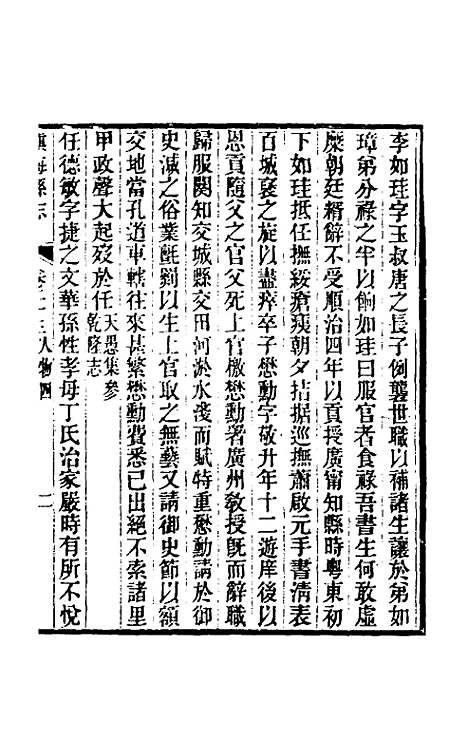 李如珪字玉叔唐之長子例襲世職以補諸生讓於弟如
璋弟分祿之半以餉如珪曰服官者食祿吾書生何敢虛
糜朝廷糈辭不受順治四年以貢授廣甯知縣時粵東初
下如珪抵任撫綏瘡痍朝夕拮据巡撫蕭啟元手書清表
百城襃之旋以盡瘁卒子懋勳字敬升年十二遊庠後以
恩貢隨父之官父死上官檄懋勳署廣州敎授旣而辭職
歸服闋知交城縣交田河淤水淺而賦特重懋勳請於御
史減之俗業氈罽以生上官取之無藝又請御史節以額
交地當孔道車轄往來甚繁懋勳費悉已出絕不索諸里
甲政聲大起歿於任天愚集參乾隆志
任德敏字捷之文華孫性孝母丁氏治家嚴時有所不悅
鎮海縣志
卷二十三人物四
二